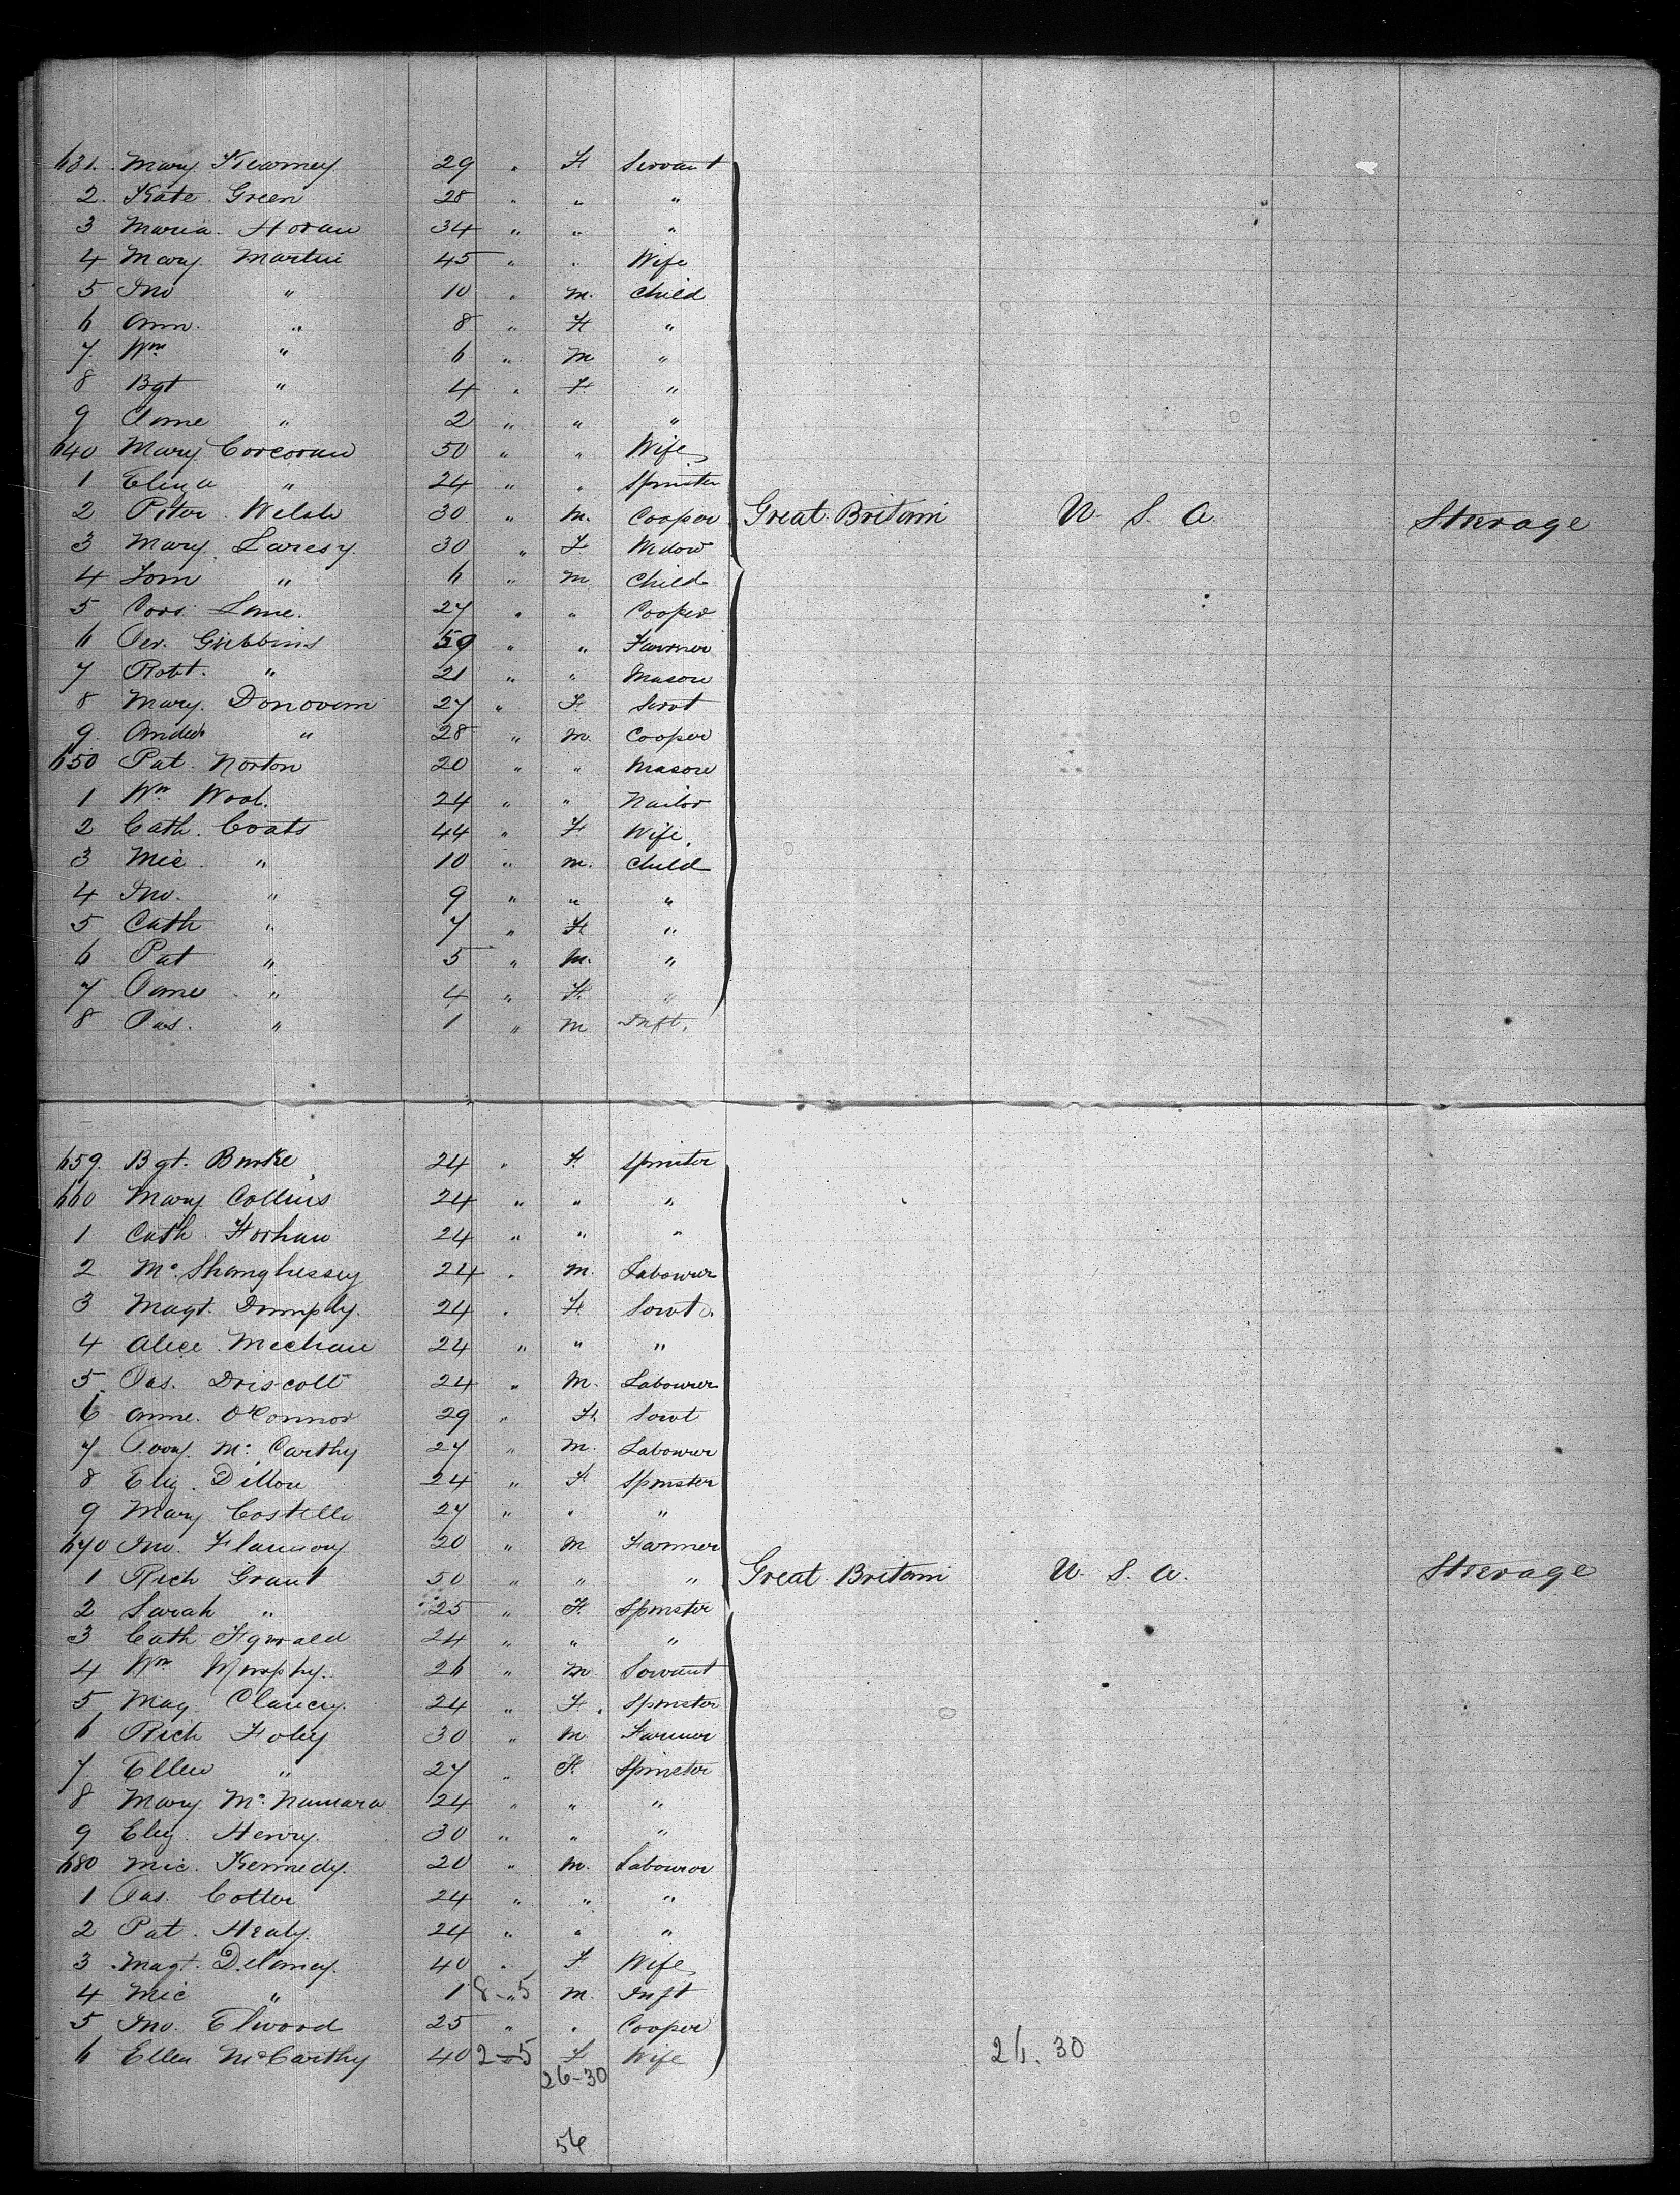 631. Mary Kearney 29 " F Servant
2. Kate Green 28 " " "
3 Maria Horan 34 " " "
4 Mary Martin 45 " " Wife
5 Jno " 10 " M. Child
6 Ann. " 8 " F "
7. Wm " 6 " M "
8 Bgt " 4 " F "
9 Jane " 2 " " "
640 Mary Corcoran 50 " " Wife
1 Eliza " 24 " " Spinster
2 Peter Welsh 30 " M. Cooper Great Britain U. S. A. Steerage
3 Mary 30 " F Widow
4 Tom " 6 " M Child
5 Lane. 27 " " Cooper
6 Gubbins 59 " " Farmer
7 Robt. " 21 " " Mason
8 Mary. Donovan 27 " F Servt
9. Andw " 28 " M. Cooper
650 Pat. Norton 20 " " Mason
1 Wm 24 " " Nailor
2 Cath. Coats 44 " F Wife.
3 Mic. " 10 " M. Child
4 Jno. " 9 " " "
5 Cath " 7 " F "
6 Pat " 5 " M. "
7 Jane " 4 " F. "
8 Jas. " 1 " M Inft.
659. Bgt. Burke 24 " F. Spinster
660 Mary Collins 24 " " "
1 Cath. 24 " " "
2 Mc. Shanghessy 24 " M. Labourer
3 Magt. 24 " F. Servt
4 Alice Meehan 24 " " "
5. Jas. Driscoll 24 " M. Labourer
6 Anne. O'Connor 29 " F. Servt
7 Mc. Carthy 27 " M. Labourer
8 Eliz. Dillon 24 " F Spinster
9 Mary Costello 27 " " "
670 Jno. Flannery 20 " M Farmer
1 Rich Grant 50 " " " Great Britain U. S. A. Steerage
2 Sarah " 25 " F. Spinster
3 Cath Fgerald 24 " " "
4 Wm Murphy. 26 " M Servant
5 Mag Clancy. 24 " F. Spinster
6 Rich Foley 30 " M Farmer
7. Ellen " 27 " F. Spinster
8 Mary Mc. Namara 24 " " "
9 Eliz. Henry. 30 " " "
680 Mic. Kennedy. 20 " M. Labourer
1 Jas. Cotter 24 " " "
2 Pat. Healy. 24 " " "
3 Magt. Delaney. 40 " F Wife
4 Mic " 1 8-"5 M. Inft
5 Jno. Elwood 25 " " Cooper
6 Ellen McCarthy 40 2-"5 F Wife 26. 30
26-30
56